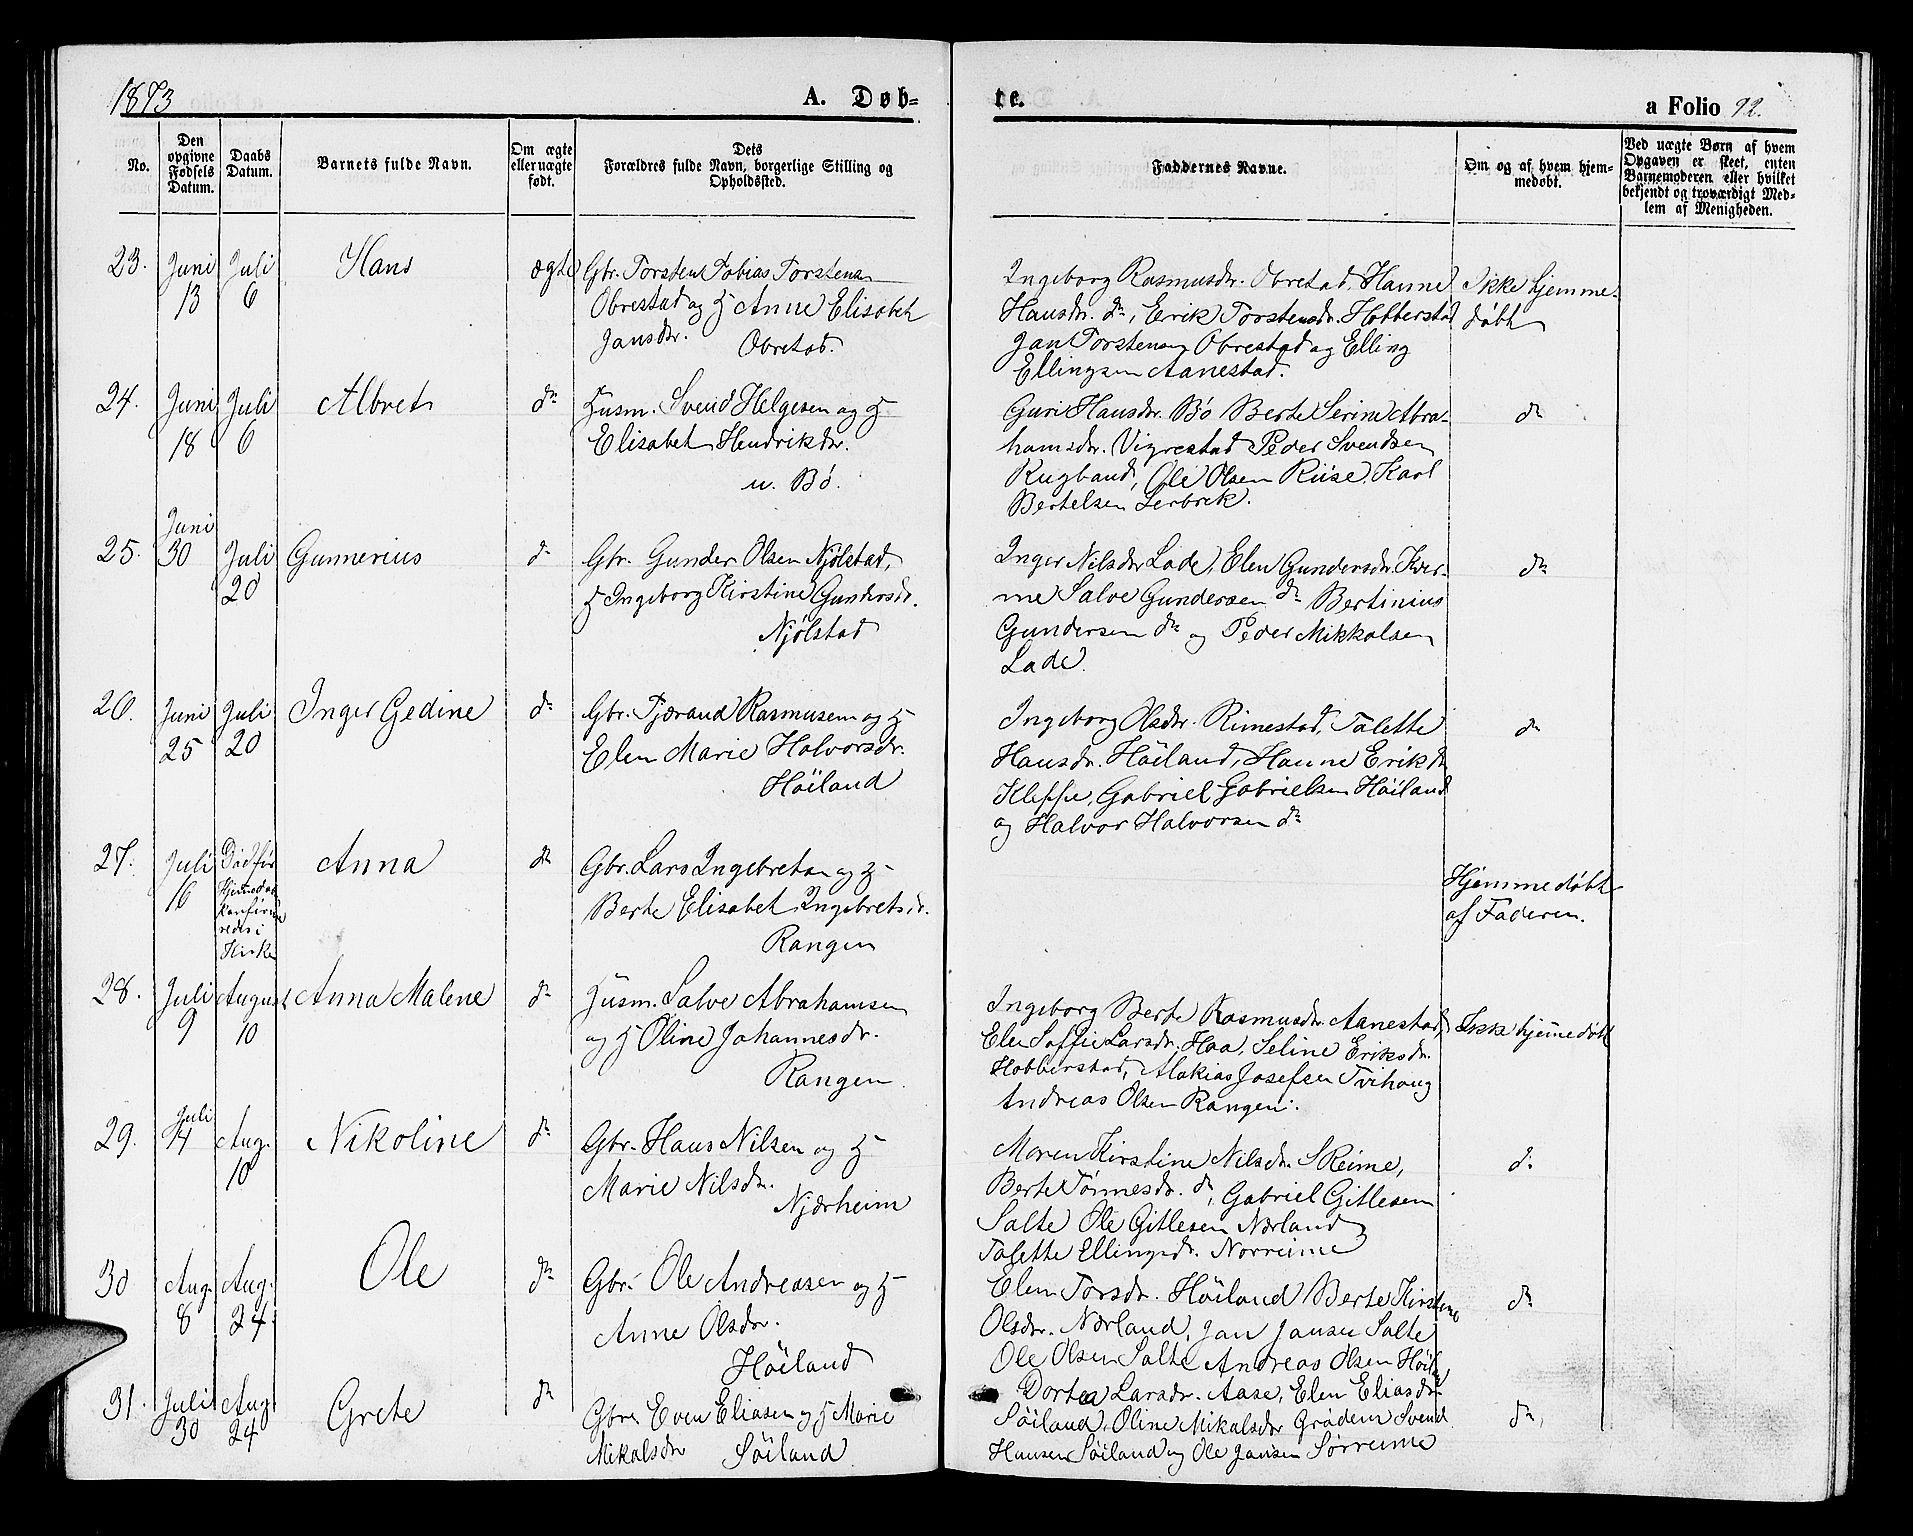 1873
A. Døb-
te.
a Folio 92.
No.
Den opgivne Fødsels Datum.
Daabs Datum.
Barnets fulde Navn.
Om ægte eller uægte født.
Dets Forældres fulde Navn, borgerlige Stilling og Opholdssted.
Faddernes Navne.
Om og af hvem hjemmedøbt.
Ved uægte Børn af hvem Opgaven er skeet, enten Barnemoderen eller hvilket bekjendt og troværdigt Medlem af Menigheden.
23. Juni 13 Juli 6 Hans ægte
Gbr. Torsten Tobias Torstensen
Obrestad og H Anne Elisabet
Jansdr. Obrestad.
Ingeborg Rasmusdr. Obrestad, Hanne
Hansdr. do, Erik Torstensdr. Hobberstad
Jan Torstensen Obrestad og Elling
Ellingsen Aanestad.
Ikke hjemme-
døbt
24. Juni 18 Juli 6 Albret do
Husm. Svend Helgesen og H
Elisabet Hendrikdr.
u. Bø.
Guri Hansdr. Bø Berte Serine Abra-
hamsdr. Vigrestad Peder Svendsen
Kugband, Ole Olsen Riise, Karl
Bertelsen Lerbrek.
do
25. Juni 30 Juli 20 Gunnerius do
Gbr. Gunder Olsen Njølstad,
H Ingeborg Kirstine Gundersdr.
Njølstad
Inger Nilsdr Lade, Elen Gundersdr. Kver-
me Salve Gundersen do Bertinius
Gundersen do og Peder Mikkalsen
Lade.
do
26. Juni 25 Juli 20 Inger Gedine do
Gbr. Tjærand Rasmusen og H
Elen Marie Halvorsdr.
Höiland
Ingeborg Olsdr. Rimestad, Talette
Hansdr. Höiland, Hanne Erikdr
Kleppe, Gabriel Gabrielsen Höiland
og Halvor Halvorsen do
do
27. Juli 16 Død før
hjemmedaab
konfirme
redes i
Kirken
Anna do
Gbr. Lars Ingebretsen og H
Berte Elisabet Ingebretsdr.
Rangen
Hjemmedøbt
af Faderen.
28. Juli 9 August 10 Anna Malene do
Husm. Salve Abrahamsen
og H Oline Johannesdr.
Rangen
Ingeborg Berte Rasmusdr. Aanestad,
Elen Soffie Larsdr. Haa, Seline Eriksdr.
Hobberstad, Malakias Josefsen Tvihoug
Andreas Olsen Rangen.
Ikke hjemmedøbt
29. Juli 14 Aug. 10 Nikoline do
Gbr. Hans Nilsen og H
Marie Nilsdr.
Njærheim
Maren Kirstine Nilsdr. SReime,
Berte Tønnesdr. do, Gabriel Gitlesen
Salte Ole Gitlesen Nærland
Talette Ellingsdr. Norreime
do
30 Aug. 8 Aug. 24 Ole do
Gbr. Ole Andreasen og H
Anne Olsdr.
Höiland
Elen Torsdr. Höiland Berte Kirstine
Olsdr. Nærland, Jan Jansen Salte
Ole Olsen Salte Andreas Olsen Höil
do
31. Juli 30 Aug 24 Grete do
Gbr. Even Eliasen og H Marie
Mikalsdr Söiland
Dortea Larsdr. Aase, Elen Eliasdr
Söiland, Oline Mikalsdr Grødem Svend
Hansen Söiland og Ole Jansen Sørreime
do